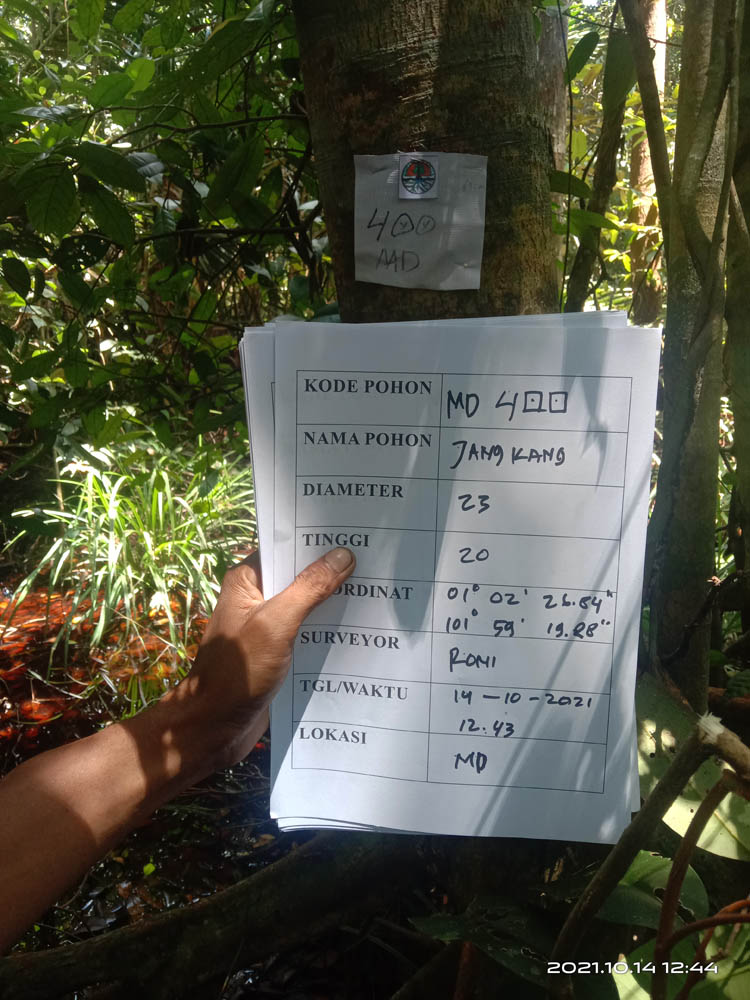 400
MD
KODE POHON MD 400
NAMA POHON JANGKANG
DIAMETER 23
TINGGI 20
ORDINAT 01° 02' 26.84"
101° 59' 19.88"
SURVEYOR RONI
TGL/WAKTU 14-10-2021
12.43
LOKASI MD
2021.10.14 12:44